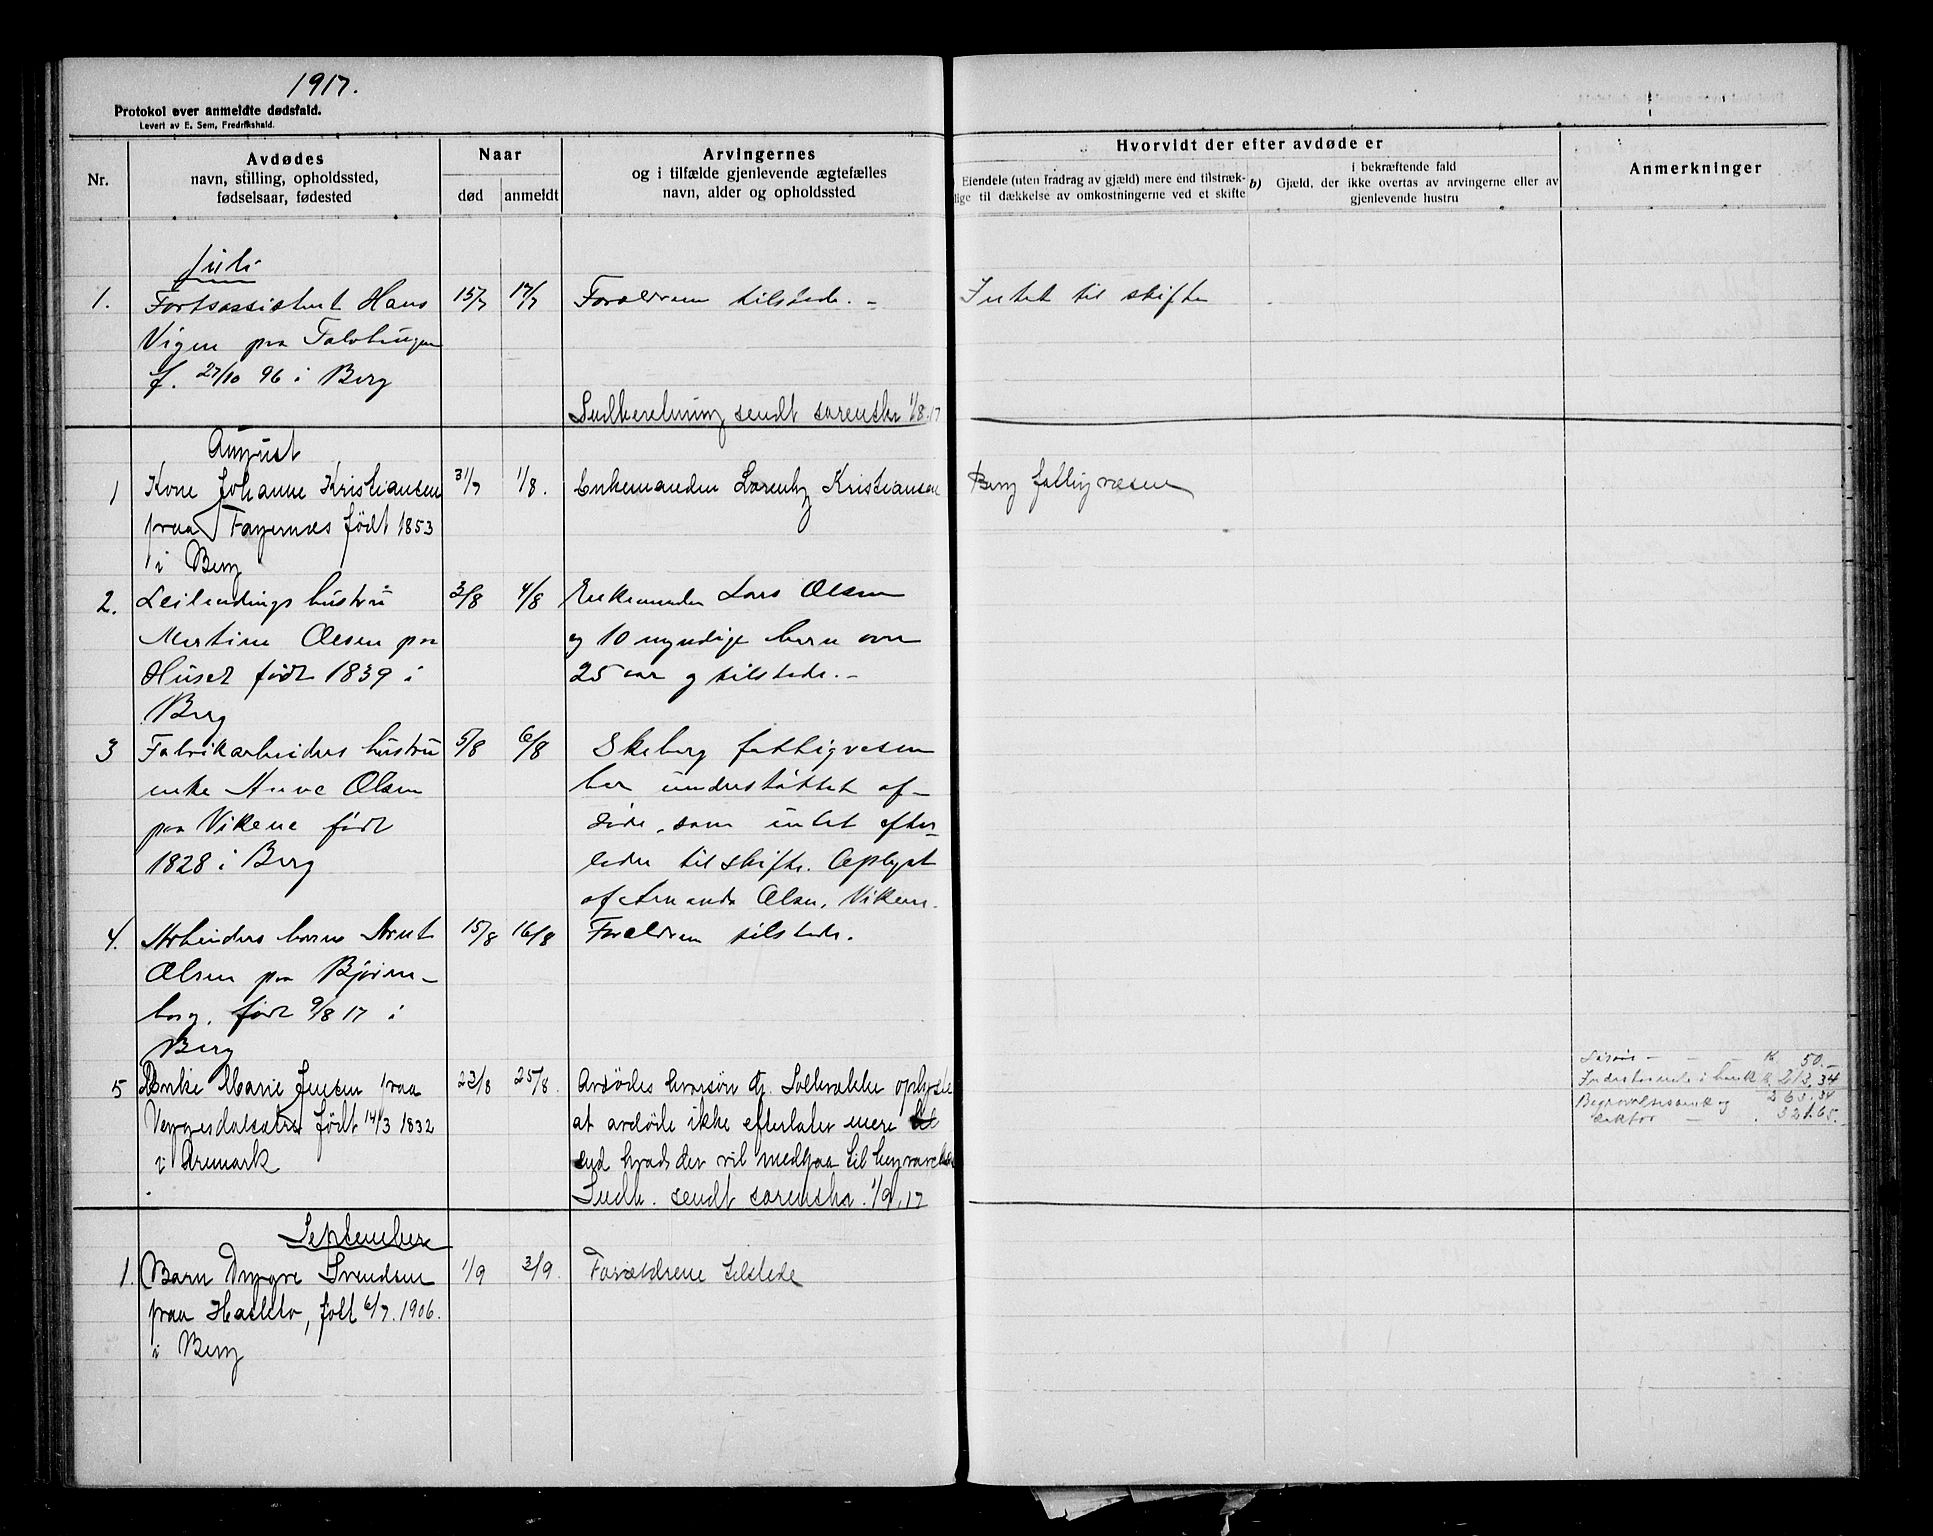 1917.
Protokol over anmeldte dødsfald.
Levert av E. Sem, Fredrikshald.
Nr.
Avdødes
navn, stilling, opholdssted,
fødselsaar, fødested
Naar
død
anmeldt
Arvingernes
og i tilfælde gjenlevende ægtefælles
navn, alder og opholdssted
Hvorvidt der efter avdøde er
Eiendele (uten fradrag av gjæld) mere end tilstræk-
lige til dækkelse av omkostningerne ved et skifte
b)
i bekræftende fald
Gjæld, der ikke overtas av arvingerne eller av
gjenlevende hustru
Anmerkninger
Juli
1. Fortsassistent Hans 15/7 17/7 Forældrene tilstede. - Intet til skifte
Vigen paa
f. 27/10 96 i Berg
Indberetning sendt sorenskr. 1/8.17
August
1 Kone Johanne Kristiansen 31/7 1/8. Enkemanden Lorentz Kristiansen Berg fattigvæsen
paa Fagernes født 1853
i Berg
2. Leilendings hustru 3/8 4/8 Enkemanden Lars Olsen
Martine Olsen paa og 10 myndige børn over
Huset født 1839 i 25 aar og tilstede. -
Berg
3 Fabrikarbeiders hustru 5/8 6/8 Skeberg fattigvæsen
enke Anne Olsen har understøttet af-
paa Vikene født døde, som intet efter-
1828 i Berg lader til skifte. Oplyst
af Amanda Olsen, Vikene.
4. Arbeiders barn Arnt 15/8 16/8 Forældrene tilstede.
Olsen paa Bjørne-
borg, født 9/8 17 i
Berg
5 Enke Marie Jensen paa 23/8 25/8. Avdødes oplyste
født 14/3 1832 at avdøde ikke efterlater mere
i Aremark end hvad der vil medgaa til begravelse
Indb. sendt sorenskr. 1/9.17
K 50.-
Indestaaende i bank K. 213,34
263.34
Begravelses og
321.65.
September
1. Barn Yngve Svendsen 1/9 3/9. Forældrene tilstede
paa født 6/7. 1906.
i Berg